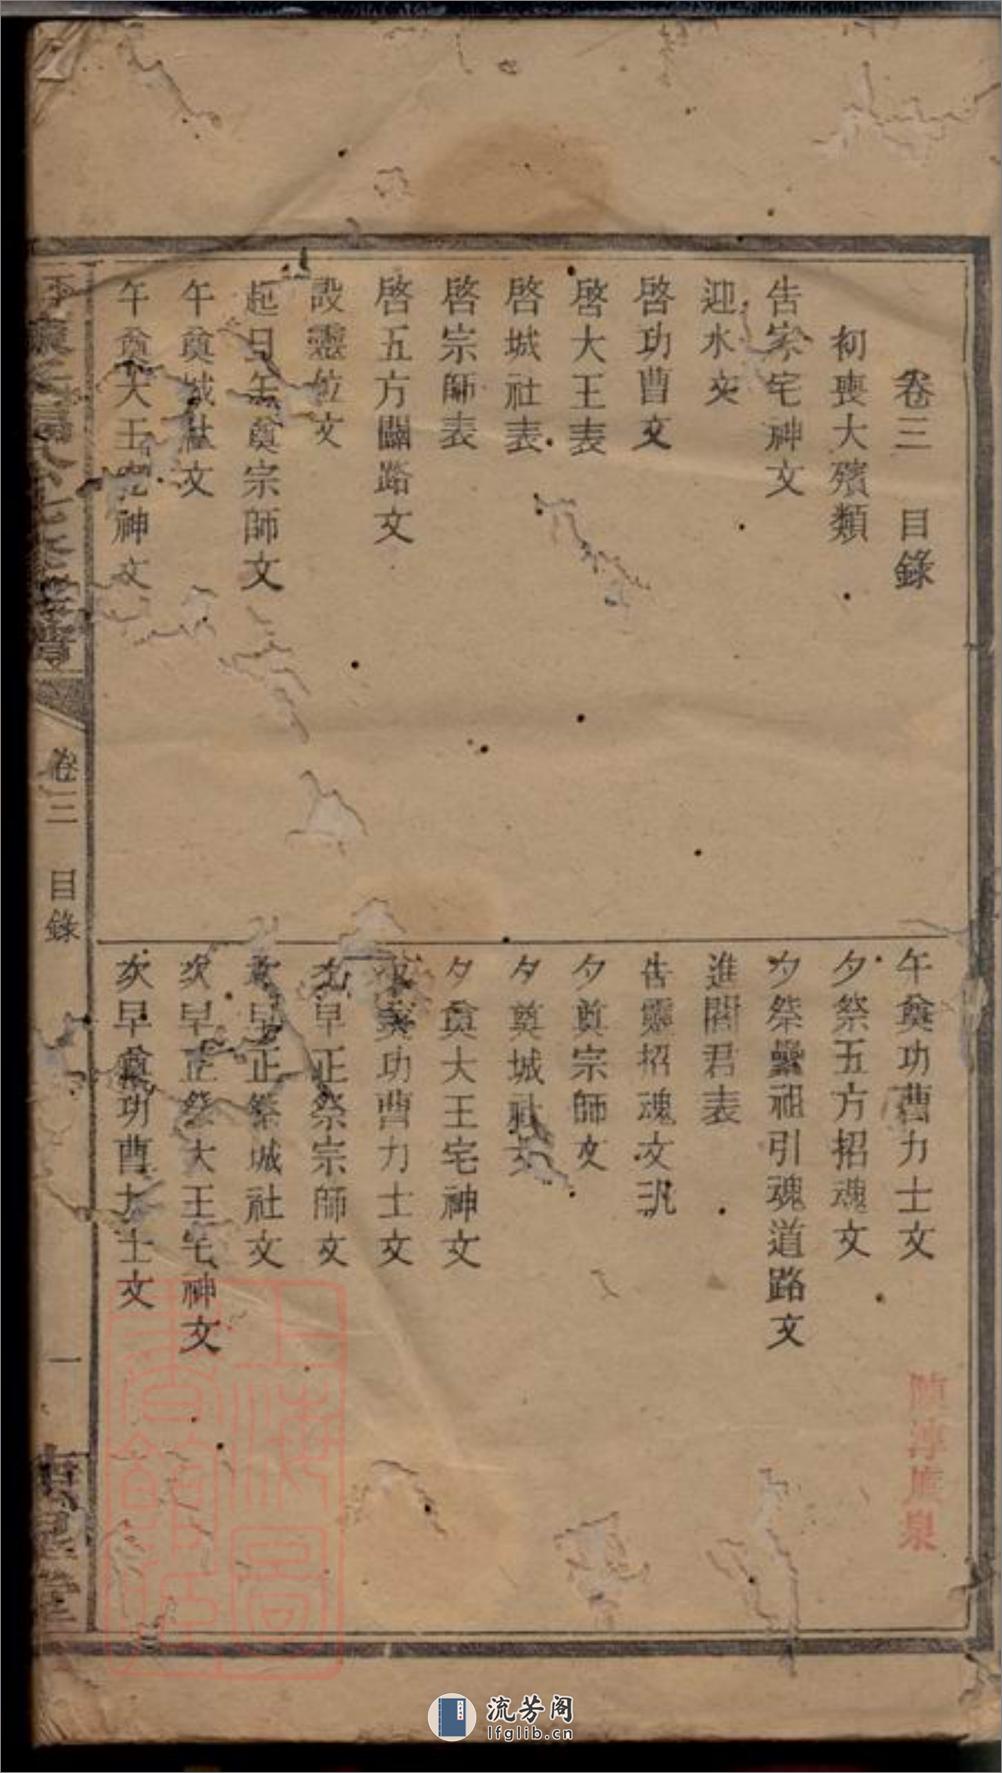 卷三 目錄
初喪大殯類
告家宅神文
迎水文
啓功曹文
啓大王表
啓城社表
啓宗師表
啓五方開路文
設靈位文
起日午奠宗師文
午奠城社文
午奠大王宅神文
午奠功曹力士文
夕祭五方招魂文
夕祭纍祖引魂道路文
進閻君表
告靈招魂文
夕奠宗師文
夕奠城社文
夕奠大王宅神文
夕奠功曹力士文
次早正祭宗師文
次早正祭城社文
次早正祭大王宅神文
次早奠功曹力士文
卷三 目錄 一
上海圖書館藏
流芳阁
lfglib.cn